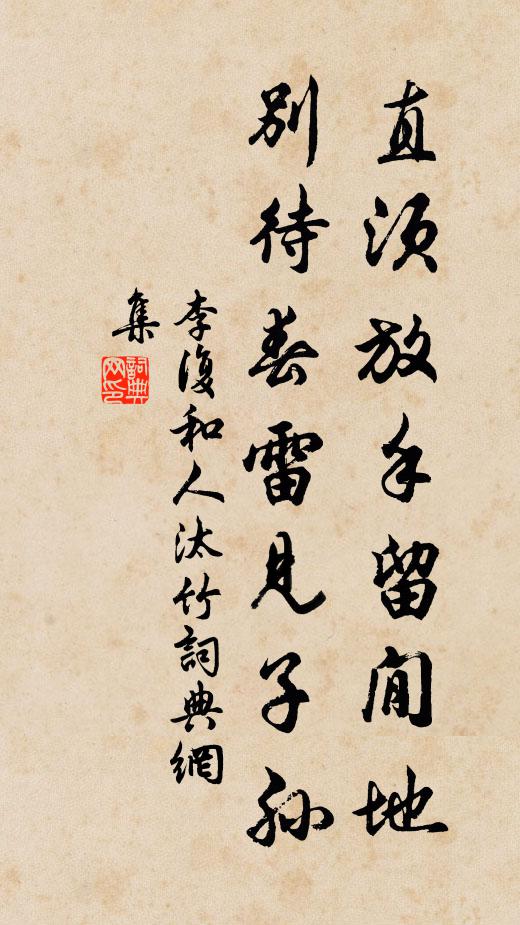 直須放手留閒地
別待春雷見子孫
李復和人汰竹詞典網
集
詞典
网印